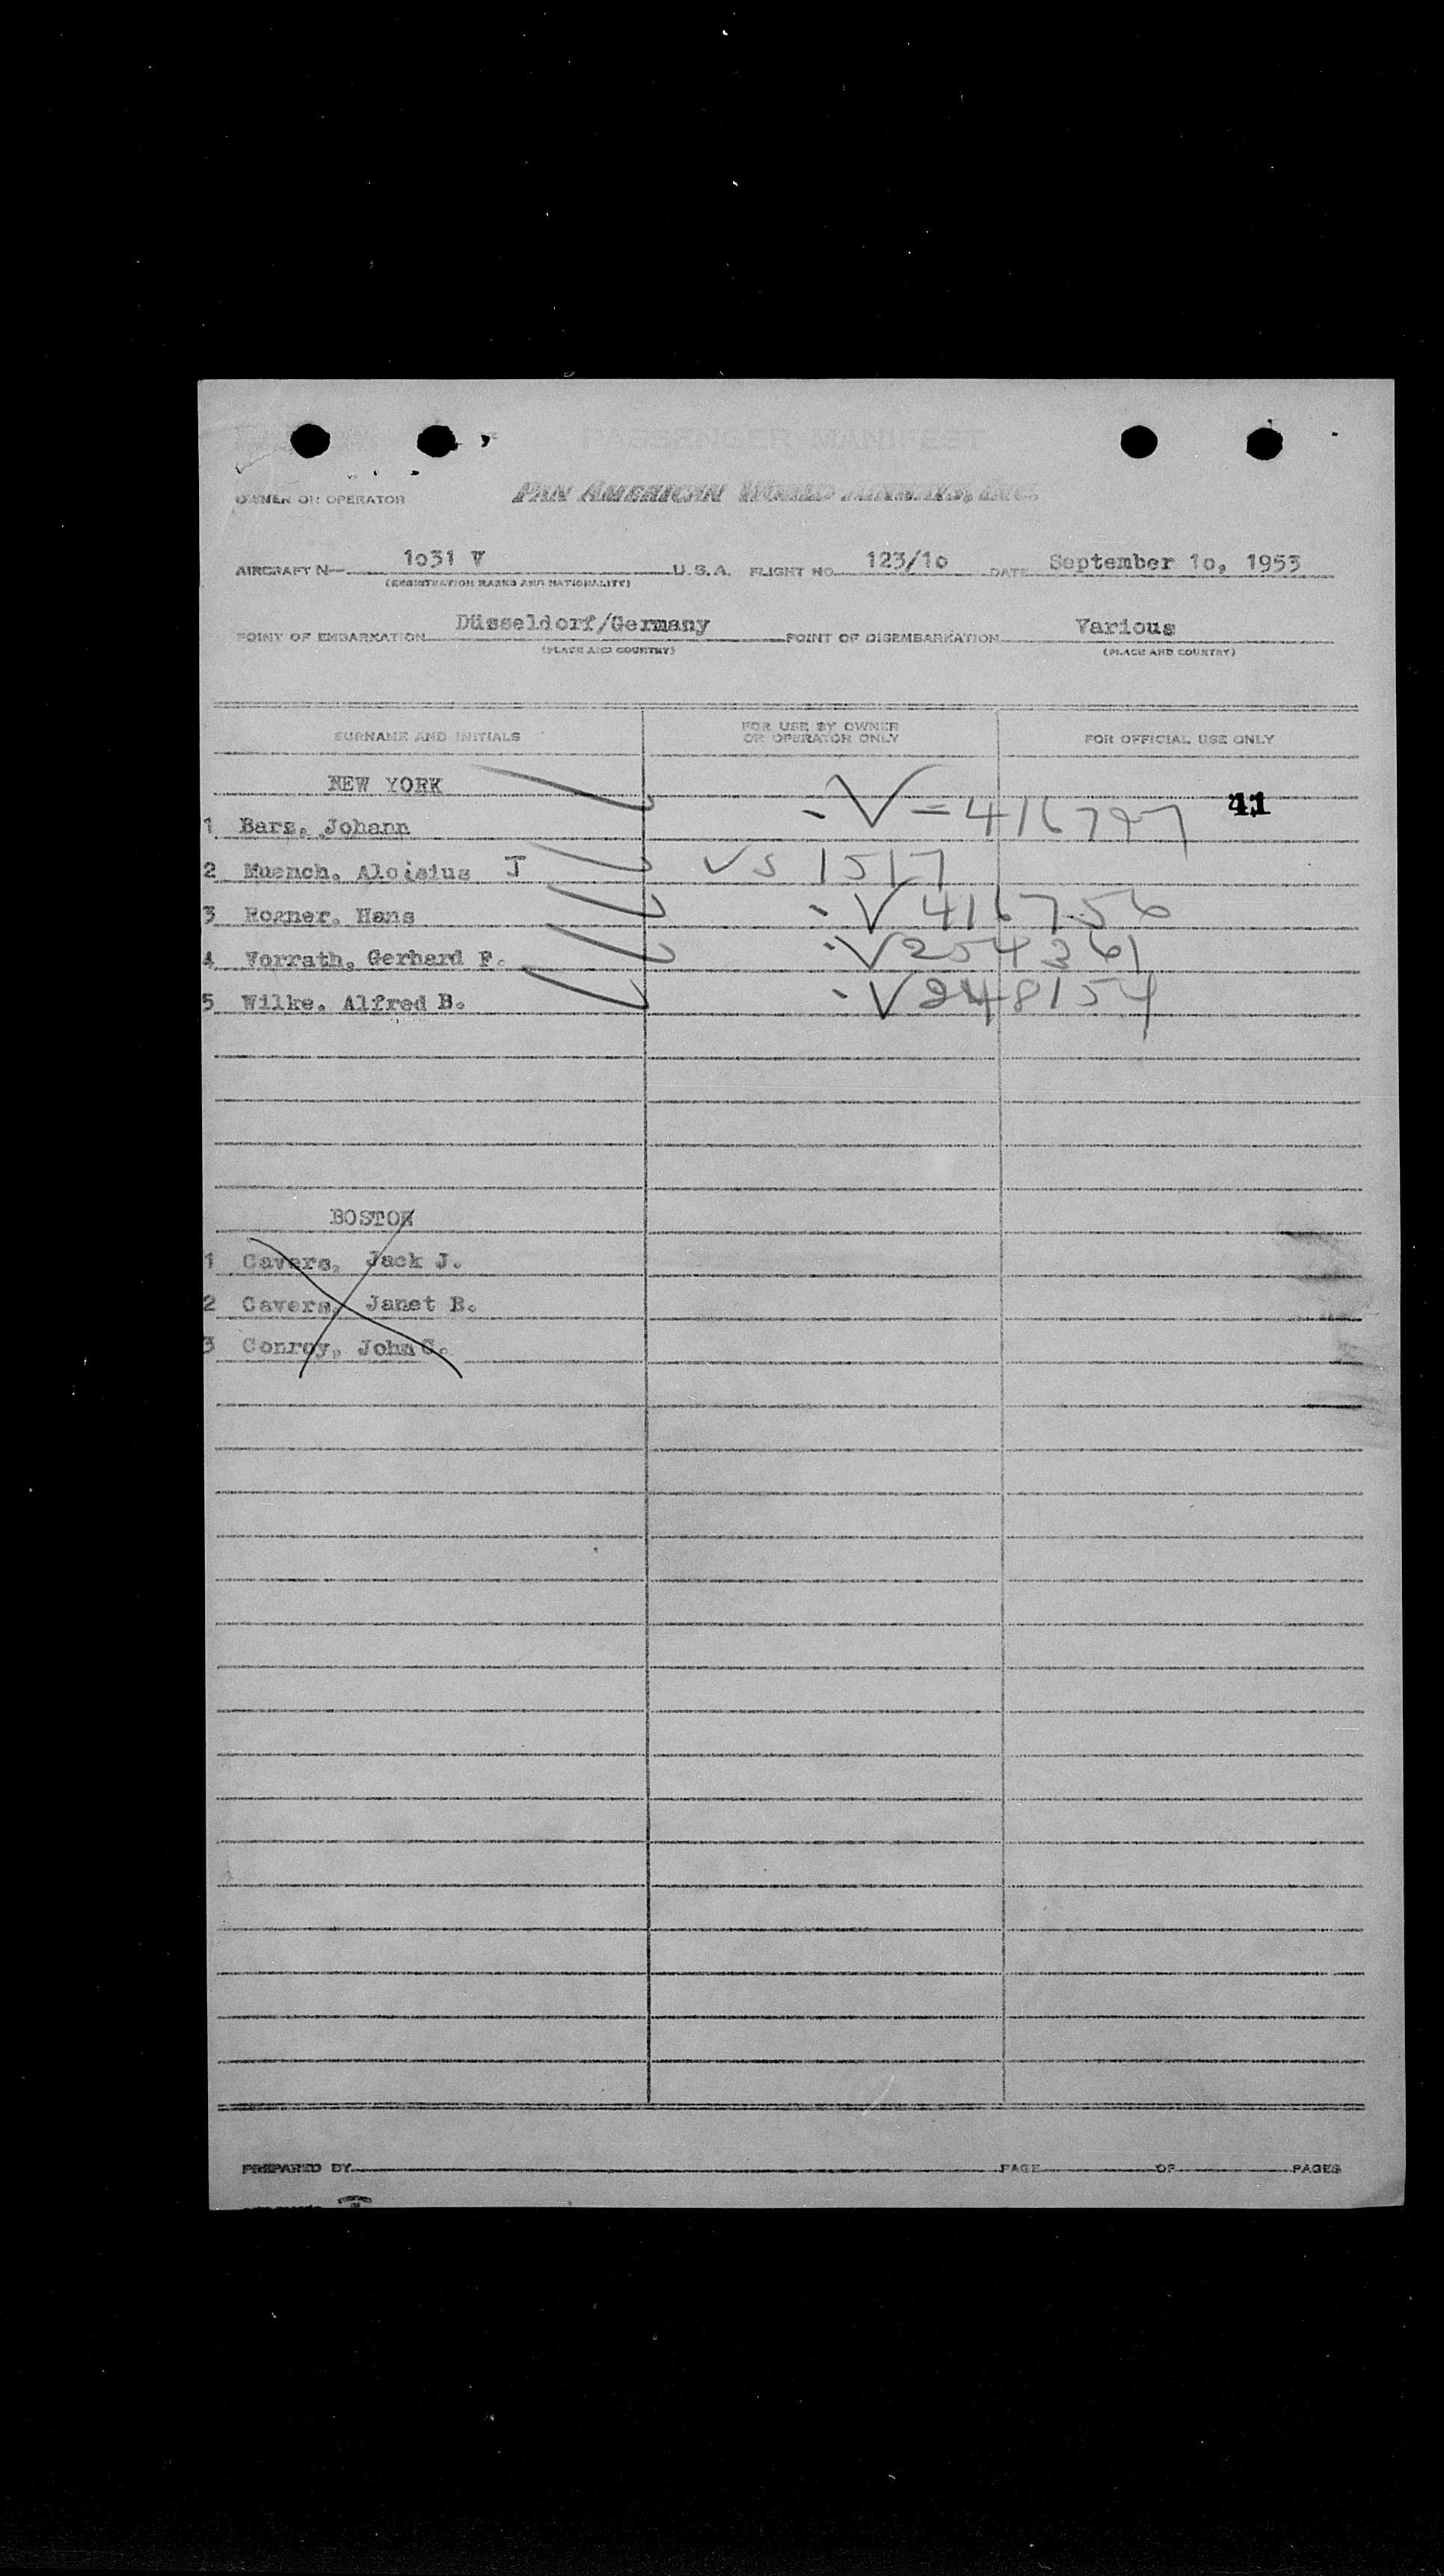 PASSENGER MANIFEST
OWNER OR OPERATOR PAN AMERICAN WORLD AIRWAYS, INC.
AIRCRAFT N— 1o31 V U.S.A. FLIGHT NO. 123/1o DATE September 1o, 1953
(REGISTRATION MARKS AND NATIONALITY)
POINT OF EMBARKATION Düsseldorf/Germany POINT OF DISEMBARKATION Various
(PLACE AND COUNTRY) (PLACE AND COUNTRY)
SURNAME AND INITIALS FOR USE BY OWNER OR OPERATOR ONLY FOR OFFICIAL USE ONLY
NEW YORK
41
1 Bars, Johann V=416797
2 Muench, Aloisius J VS 1517
3 Rogner, Hans V 416756
4 Vorrath, Gerhard F. V254361
5 Wilke, Alfred B. V248154
BOSTON
1 Cavers, Jack J.
2 Cavers, Janet B.
3 Conroy, John C.
PREPARED BY PAGE OF PAGES